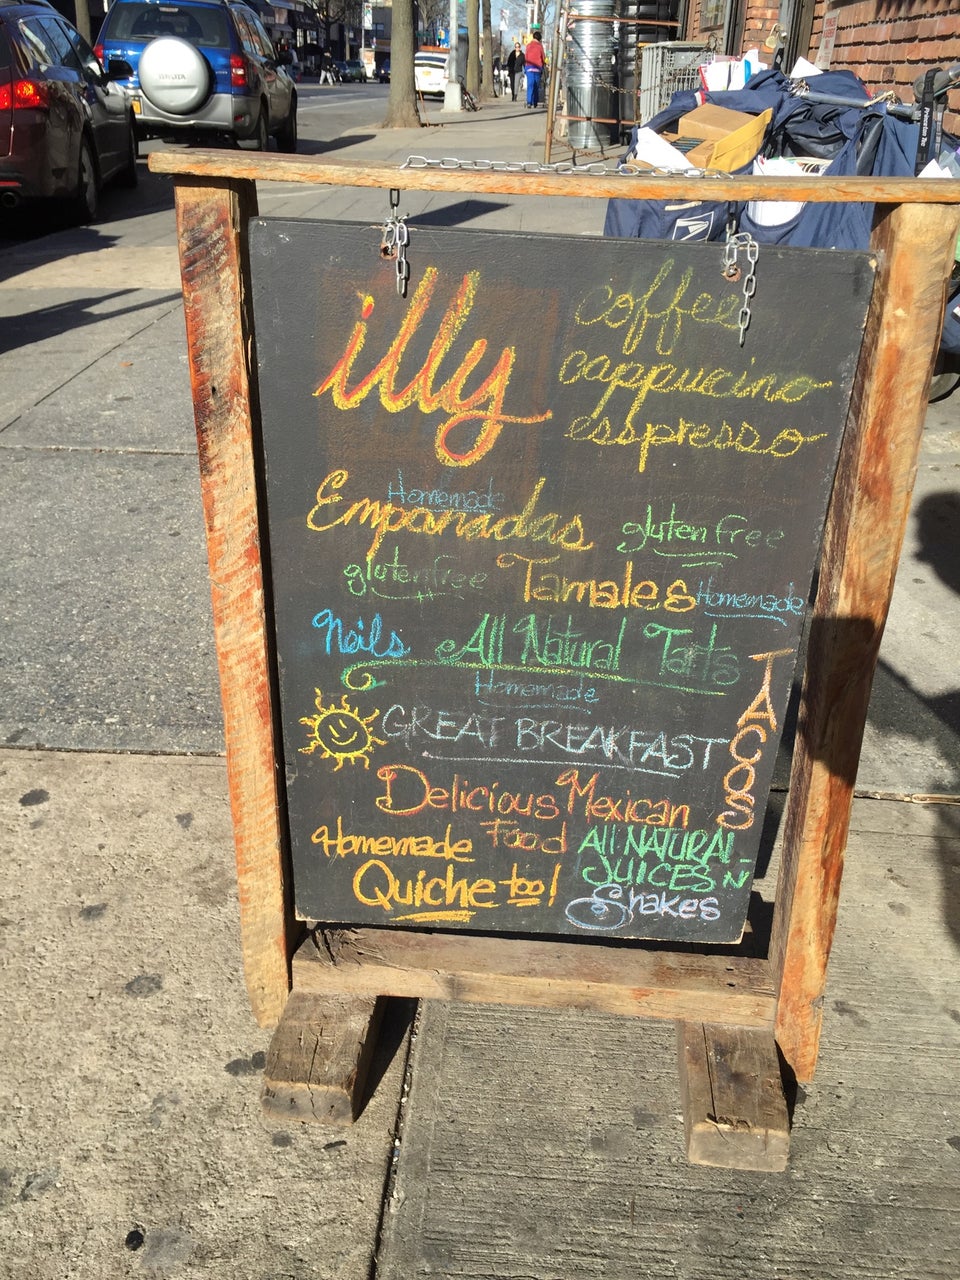 illy
coffee
cappuccino
esspresso
Homemade
Empanadas gluten free
gluten free Tamales Homemade
Neils All Natural Tarts
Homemade
TACOS
GREAT BREAKFAST
Delicious Mexican
Food
Homemade
Quiche too!
All NATURAL
JUICES N
Shakes
TOYOTA